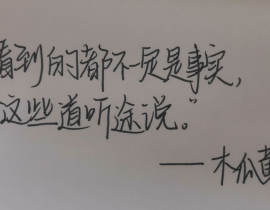 看到的都不一定是事实,
这些道听途说。”
——木瓜黄